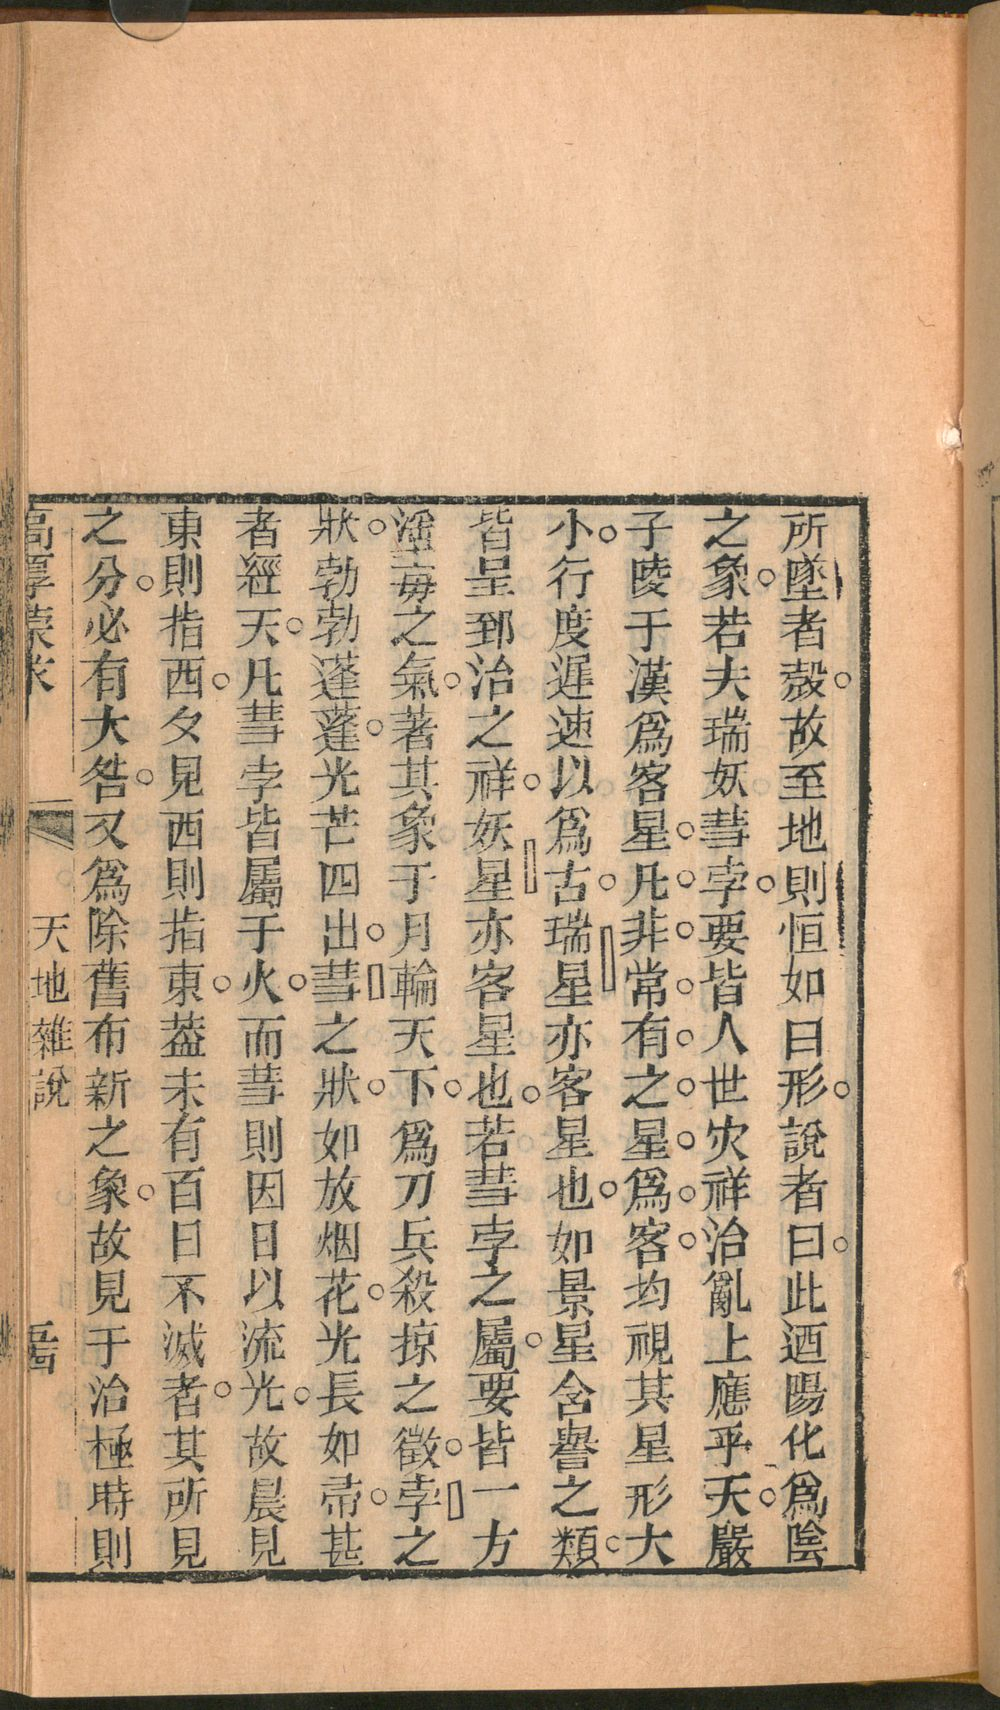 所墜者殼故至地則恒如曰形說者曰此迺陽化爲陰
之象若夫瑞妖彗孛要皆人世灾祥治亂上應乎天嚴
子陵于漢爲客星凡非常有之星爲客均視其星形大
小行度遲速以爲占瑞星亦客星也如景星含譽之類
皆呈郅治之祥妖星亦客星也若彗孛之屬要皆一方
之氣著其象于月輪天下爲刀兵殺掠之徵孛之
狀勃勃蓬蓬光芒四出彗之狀如放烟花光長如帚甚
者經天凡彗孛皆屬于火而彗則因日以流光故晨見
東則指西夕見西則指東葢未有百日不滅者其所見
之分必有大咎又爲除舊布新之象故見于治極時則
高厚蒙求
天地雜說